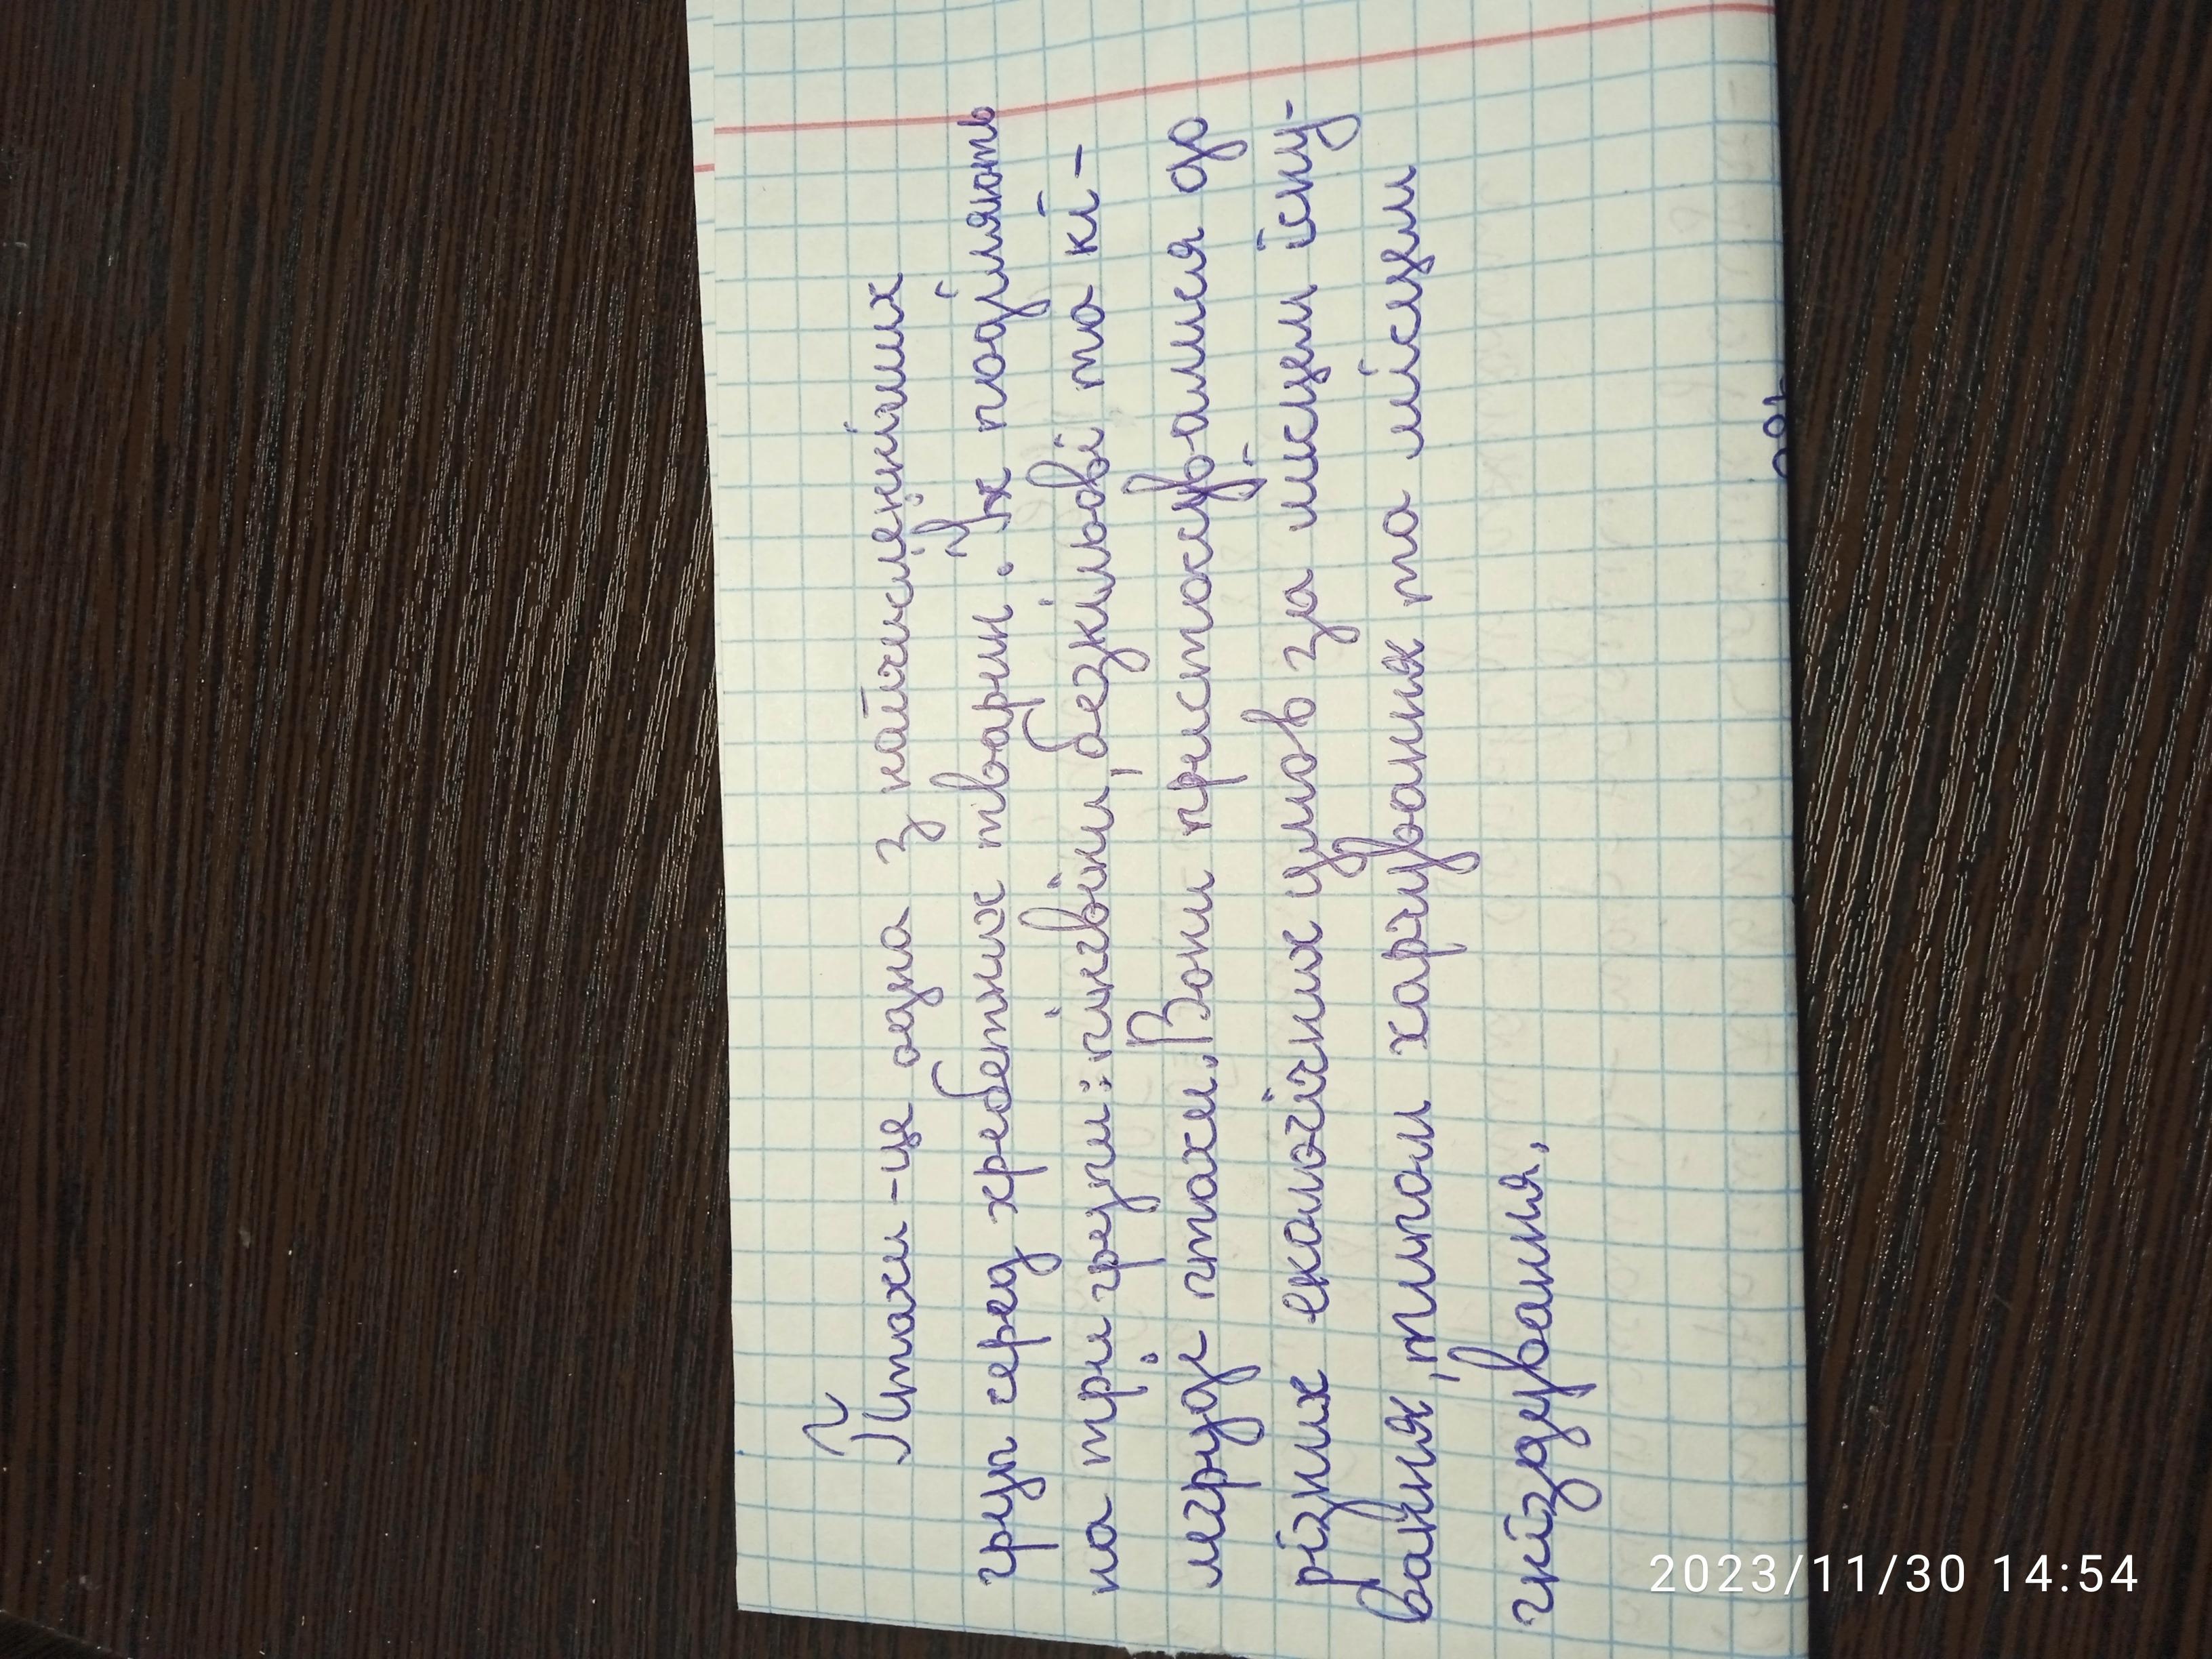 Птахи - це одна з найчисленніших
груп серед хребетних тварин. Їх поділяють
на три групи: пінгвіни, безкільові та кі-
легруді птахи. Вони пристосувалися до
різних екологічних умов за місцем існу-
вання, типом харчування та місцем
гніздування.
2023/11/30 14:54